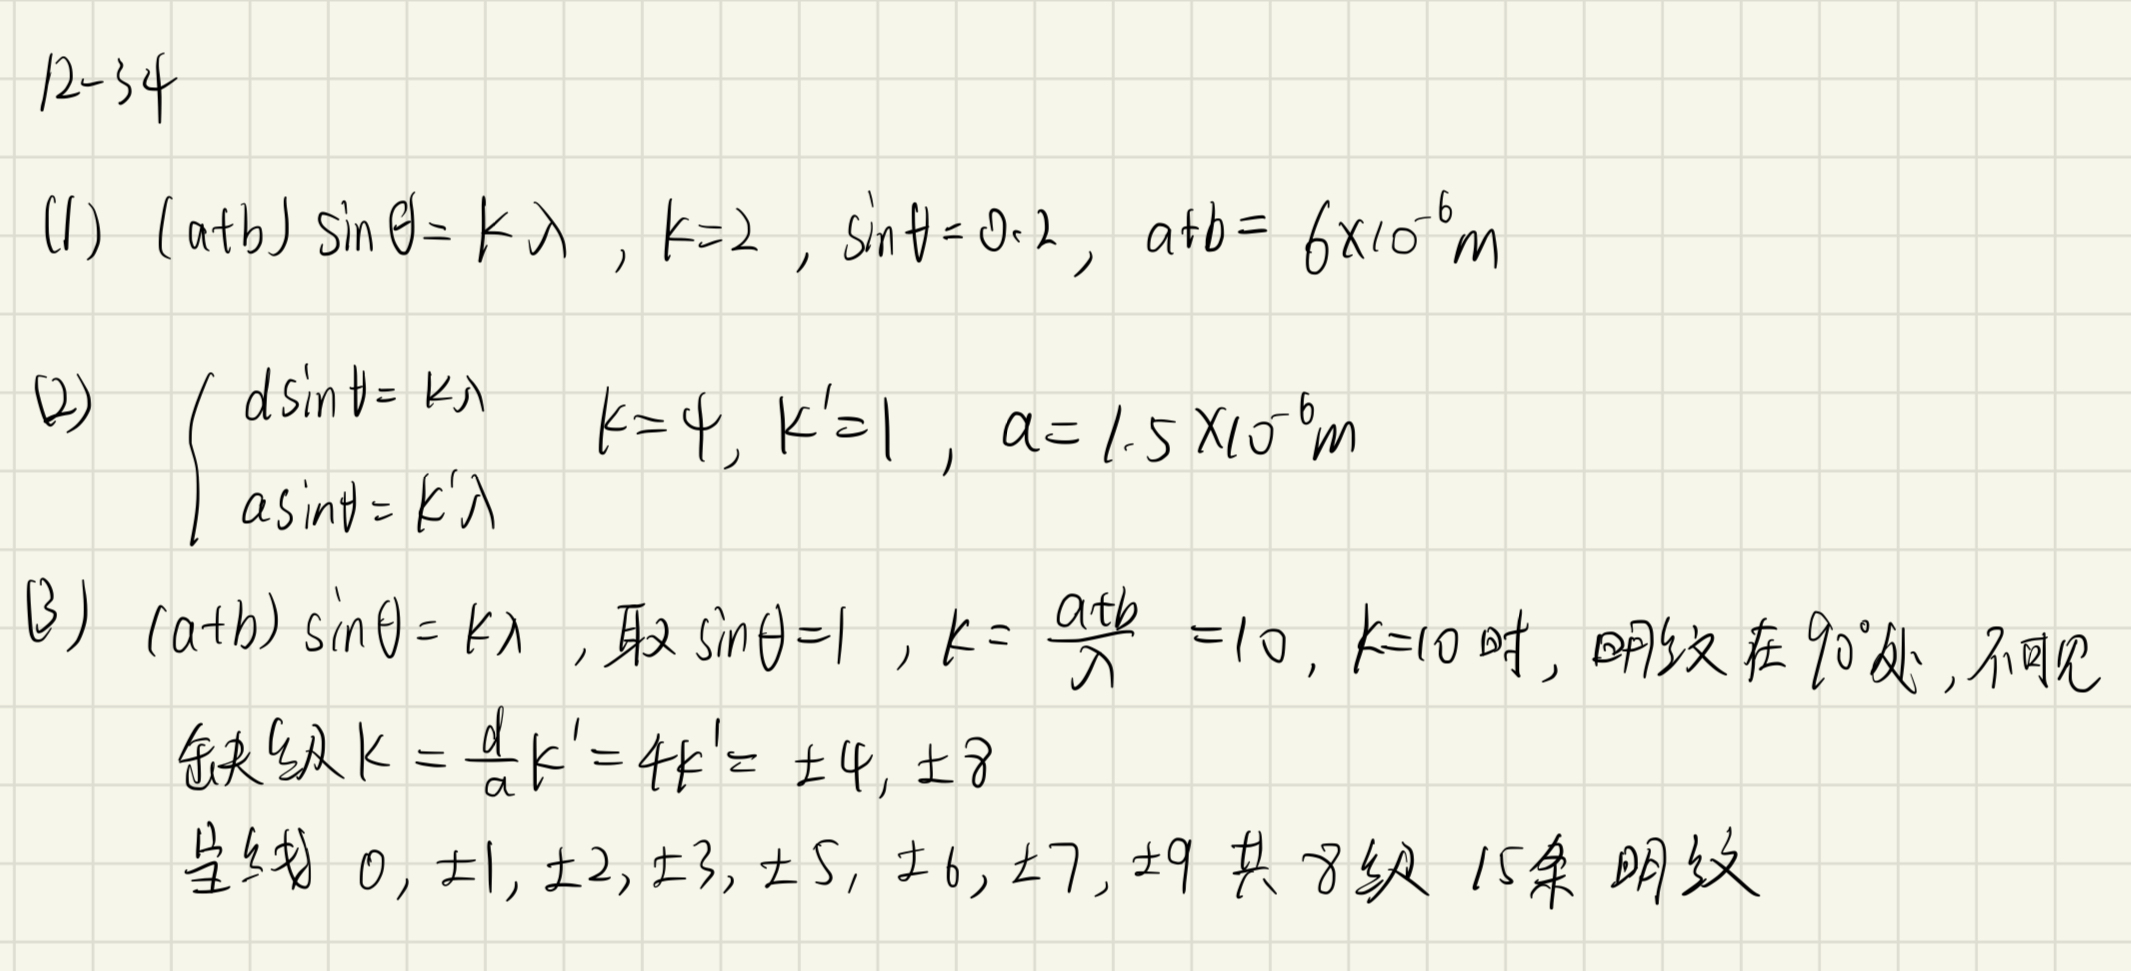 12-34
(1) (a+b) sinθ = kλ , k=2 , sinθ = 0.2 , a+b = 6×10⁻⁶m
(2) { dsinθ = kλ k=4, k'=1 , a = 1.5×10⁻⁶m
asinθ = k'λ
(3) (a+b) sinθ = kλ , 取 sinθ=1 , k = \frac{a+b}{λ} =10, k=10时, 明纹在90°处, 不可见
缺级 k = \frac{d}{a}k' = 4k' = ±4, ±8
呈现 0, ±1, ±2, ±3, ±5, ±6, ±7, ±9 共8级 15条 明纹